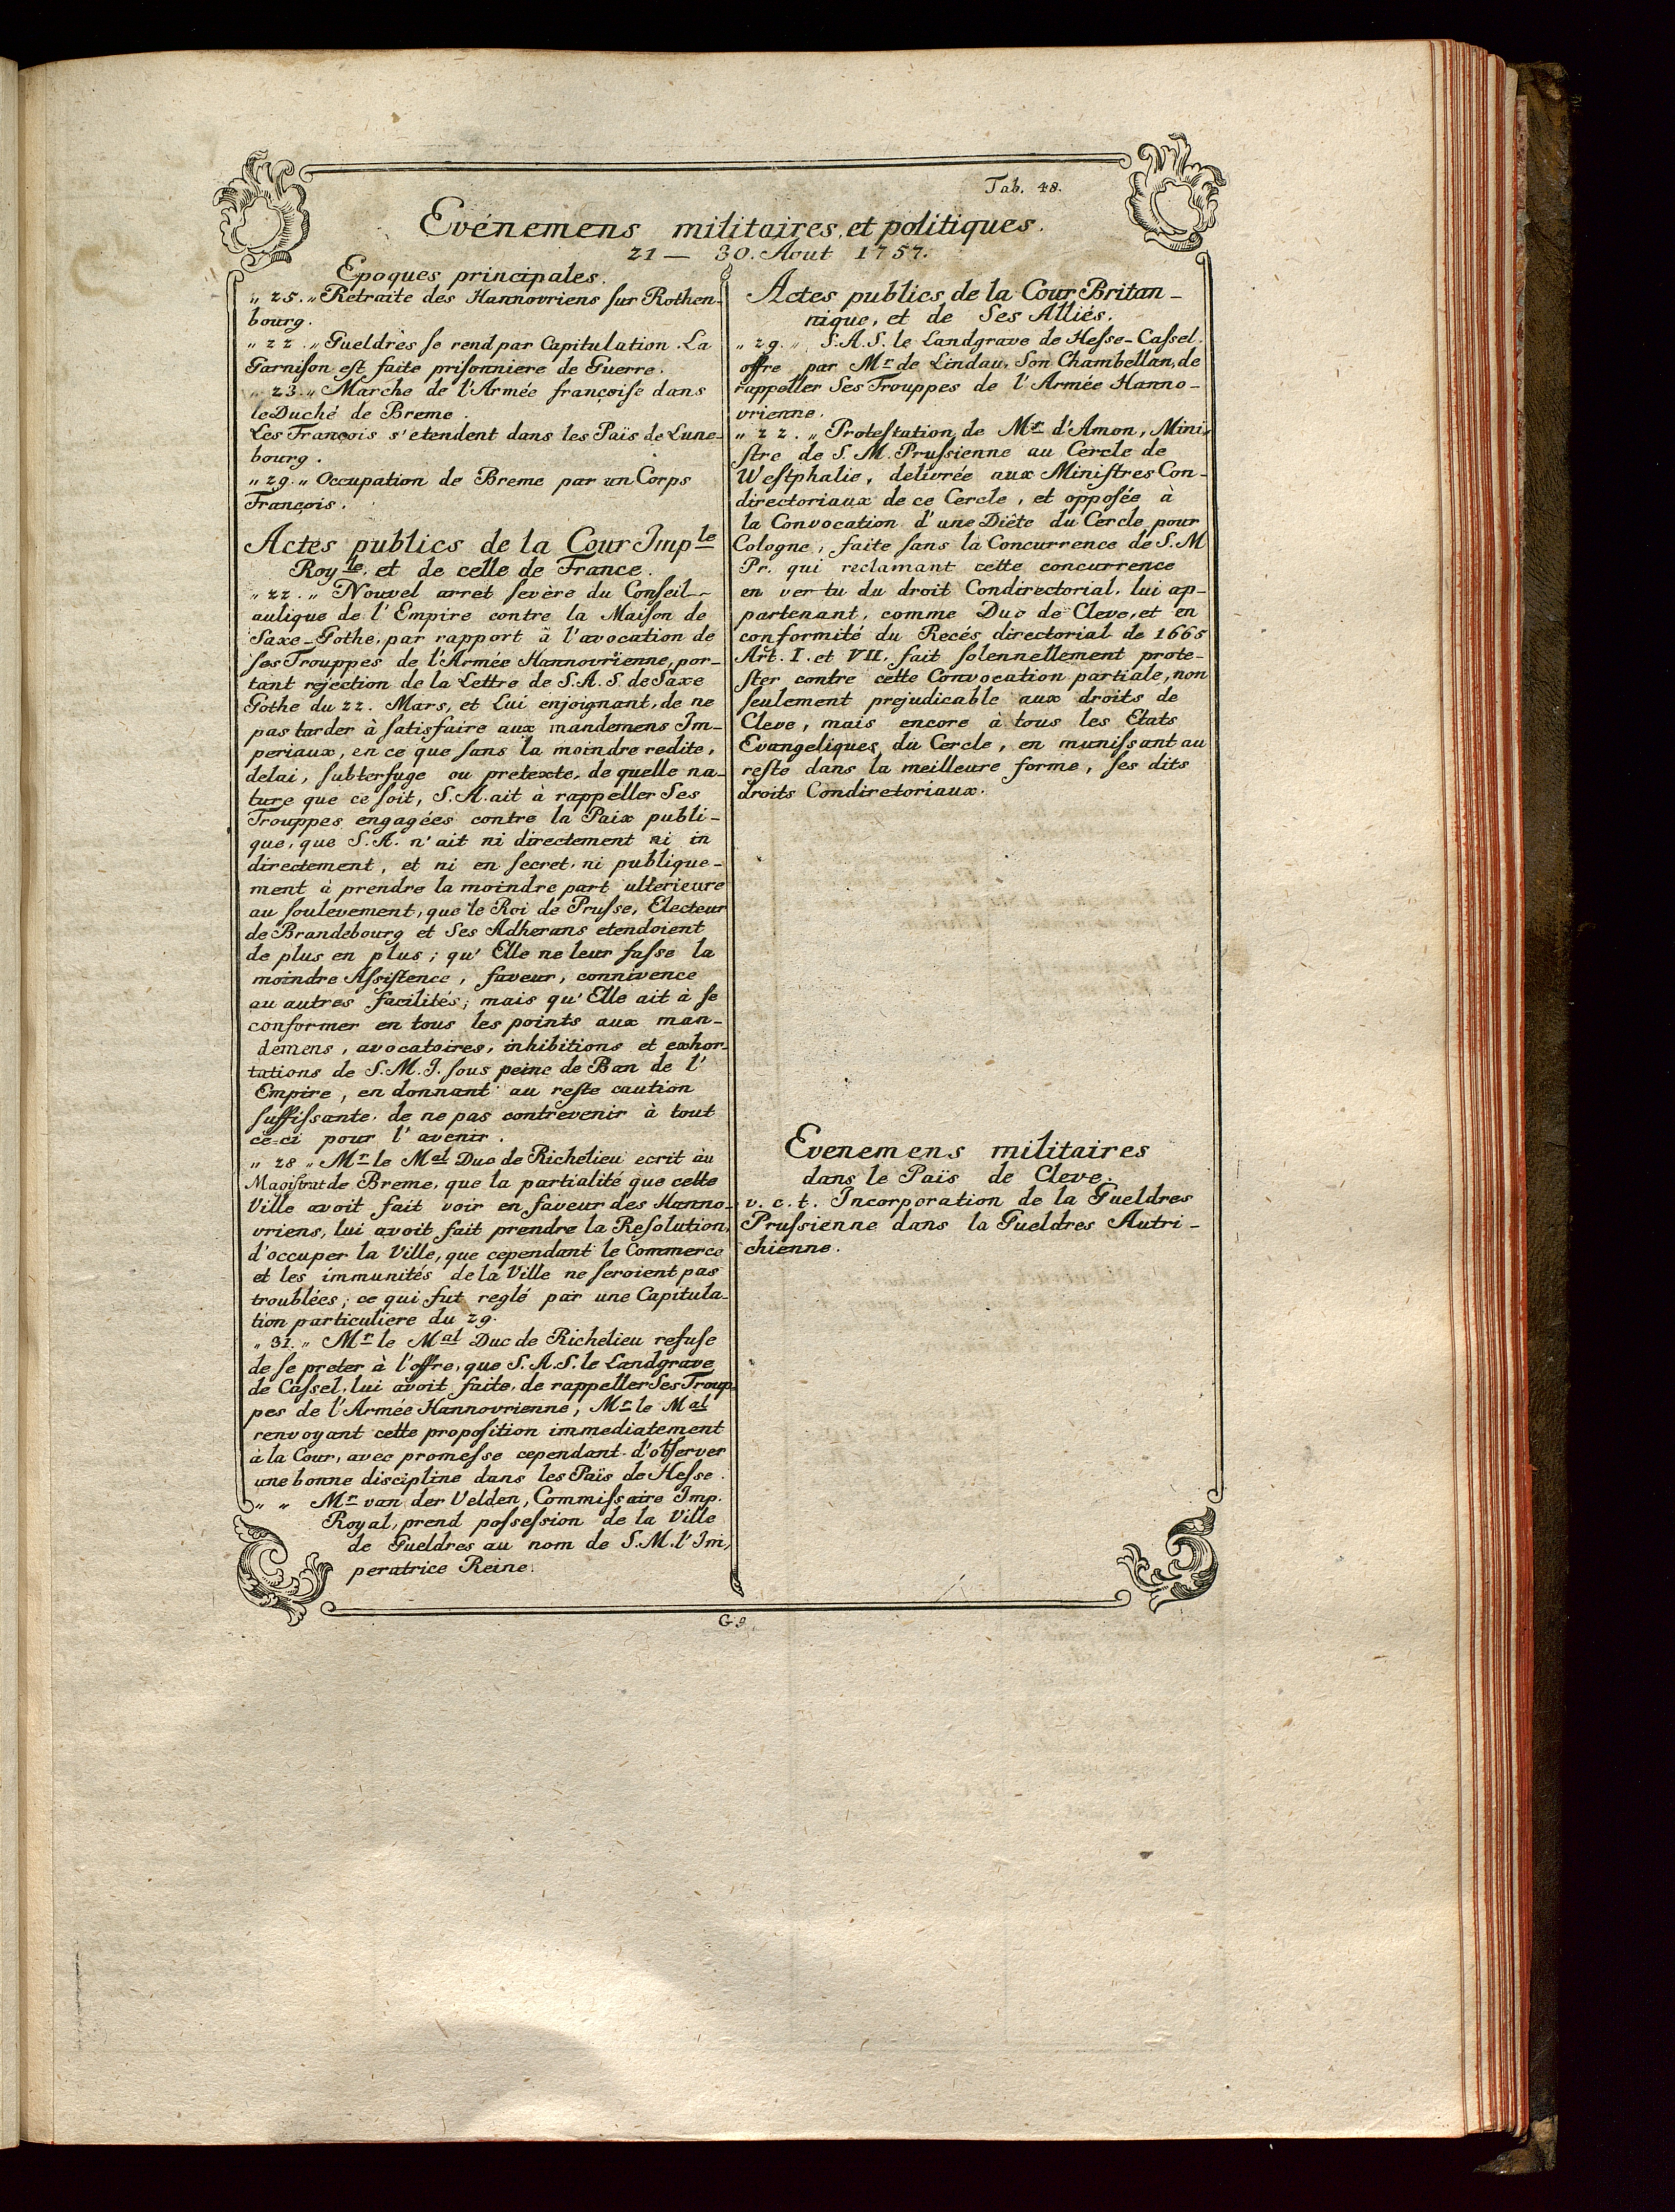 Tab. 48.
Evénemens militaires, et politiques.
21 — 30. Aout 1757.
Epoques principales.
„ 25. „ Retraite des Hannovriens sur Rothen-
bourg.
„ 22. „ Gueldres se rend par Capitulation. La
Garnison est faite prisonniere de Guerre.
„ 23. „ Marche de l'Armée françoise dans
le Duché de Breme.
Les François s'etendent dans les Païs de Lune-
bourg.
„ 29. „ Occupation de Breme par un Corps
François.
Actes publics de la Cour Imple
Royle. et de celle de France.
„ 22. „ Nouvel arret severe du Conseil-
aulique de l'Empire contre la Maison de
Saxe-Gothe, par rapport à l'avocation de
ses Trouppes de l'Armée Hannovrienne, por-
tant rejection de la Lettre de S. A. S. de Saxe
Gothe du 22. Mars, et Lui enjoignant, de ne
pas tarder à satisfaire aux mandemens Im-
periaux, en ce que sans la moindre redite,
delai, subterfuge ou pretexte, de quelle na-
ture que ce soit, S. A. ait à rappeller Ses
Trouppes engagées contre la Paix publi-
que, que S. A. n'ait ni directement ni in
directement, et ni en secret, ni publique-
ment à prendre la moindre part ulterieure
au soulevement, que le Roi de Prusse, Electeur
de Brandebourg et Ses Adherans etendoient
de plus en plus; qu'Elle ne leur fasse la
moindre Assistence, faveur, connivence
au autres facilités; mais qu'Elle ait à se
conformer en tous les points aux man-
demens, avocatoires, inhibitions et exhor-
tations de S. M. I. sous peine de Ban de l'
Empire, en donnant au reste caution
suffissante, de ne pas contrevenir à tout
ce=ci pour l'avenir.
„ 28 „ Mr le Mal Duc de Richelieu ecrit àu
Magistrat de Breme, que la partialité que cette
Ville avoit fait voir en faveur des Hanno-
vriens, lui avoit fait prendre la Resolution,
d'occuper la Ville, que cependant le Commerce
et les immunités de la Ville ne seroient pas
troublées; ce qui fut reglé par une Capitula-
tion particuliere du 29.
„ 31. „ Mr le Mal Duc de Richelieu refuse
de se preter à l'offre, que S. A. S. le Landgrave
de Cassel, lui avoit faite, de rappeller Ses Troup-
pes de l'Armée Hannovrienne, Mr le Mal
renvoyant cette proposition immediatement
à la Cour, avec promesse cependant d'observer
une bonne discipline dans les Païs de Hesse.
„ „ Mr van der Velden, Commissaire Imp.
Royal, prend possession de la Ville
de Gueldres au nom de S. M. l'Im,
peratrice Reine.
Actes publics de la Cour Britan-
nique, et de Ses Alliés.
„ 29. „ S. A. S. le Landgrave de Hesse-Cassel.
offre par Mr de Lindau, Son Chambellan, de
rappeller Ses Trouppes de l'Armée Hanno-
vrienne.
„ 22. „ Protestation de Mr d'Amon, Mini-
stre de S. M. Prussienne au Cercle de
Westphalie, delivrée aux Ministres Con-
directoriaux de ce Cercle, et opposée à
la Convocation d'une Diète du Cercle pour
Cologne, faite sans la Concurrence de S. M
Pr. qui reclamant cette concurrence
en vertu du droit Condirectorial, lui ap-
partenant, comme Duc de Cleve, et en
conformité du Recés directorial de 1665
Art. I. et VII. fait solennellement prote-
ster contre cette Convocation partiale, non
seulement prejudicable aux droits de
Cleve, mais encore à tous les Etats
Evangeliques du Cercle, en munissant au
reste dans la meilleure forme, ses dits
droits Condiretoriaux.
Evenemens militaires
dans le Païs de Cleve.
v. c. t. Incorporation de la Gueldres
Prussienne dans la Gueldres Autri-
chienne.
G 9